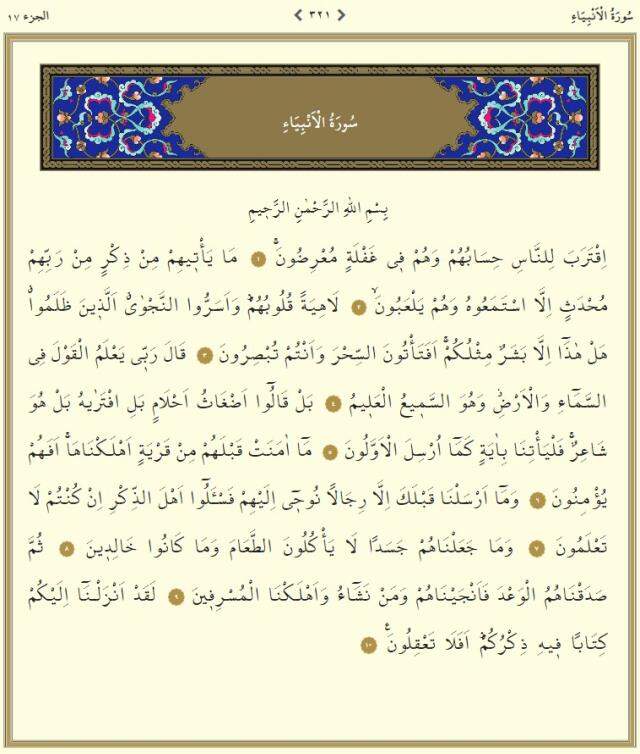 سُورَةُ الْاَنْبِيَاءِ
٣٢١
الجزء ١٧
سُورَةُ الْاَنْبِيَاءِ
بِسْمِ اللهِ الرَّحْمٰنِ الرَّح۪يمِ
اِقْتَرَبَ لِلنَّاسِ حِسَابُهُمْ وَهُمْ ف۪ي غَفْلَةٍ مُعْرِضُونَۚ ١ مَا يَأْت۪يهِمْ مِنْ ذِكْرٍ مِنْ رَبِّهِمْ
مُحْدَثٍ اِلَّا اسْتَمَعُوهُ وَهُمْ يَلْعَبُونَۙ ٢ لَاهِيَةً قُلُوبُهُمْۜ وَاَسَرُّوا النَّجْوٰىۗ اَلَّذ۪ينَ ظَلَمُواۗ
هَلْ هٰذَٓا اِلَّا بَشَرٌ مِثْلُكُمْۚ اَفَتَأْتُونَ السِّحْرَ وَاَنْتُمْ تُبْصِرُونَ ٣ قَالَ رَبّ۪ي يَعْلَمُ الْقَوْلَ فِى
السَّمَٓاءِ وَالْاَرْضِۘ وَهُوَ السَّم۪يعُ الْعَل۪يمُ ٤ بَلْ قَالُٓوا اَضْغَاثُ اَحْلَامٍ بَلِ افْتَرٰيهُ بَلْ هُوَ
شَاعِرٌۚ فَلْيَأْتِنَا بِاٰيَةٍ كَمَٓا اُرْسِلَ الْاَوَّلُونَ ٥ مَٓا اٰمَنَتْ قَبْلَهُمْ مِنْ قَرْيَةٍ اَهْلَكْنَاهَاۚ اَفَهُمْ
يُؤْمِنُونَ ٦ وَمَٓا اَرْسَلْنَا قَبْلَكَ اِلَّا رِجَالًا نُوح۪ٓي اِلَيْهِمْ فَسْـَٔلُٓوا اَهْلَ الذِّكْرِ اِنْ كُنْتُمْ لَا
تَعْلَمُونَ ٧ وَمَا جَعَلْنَاهُمْ جَسَدًا لَا يَأْكُلُونَ الطَّعَامَ وَمَا كَانُوا خَالِد۪ينَ ٨ ثُمَّ
صَدَقْنَاهُمُ الْوَعْدَ فَاَنْجَيْنَاهُمْ وَمَنْ نَشَٓاءُ وَاَهْلَكْنَا الْمُسْرِف۪ينَ ٩ لَقَدْ اَنْزَلْنَٓا اِلَيْكُمْ
كِتَابًا ف۪يهِ ذِكْرُكُمْۜ اَفَلَا تَعْقِلُونَ۟ ١٠